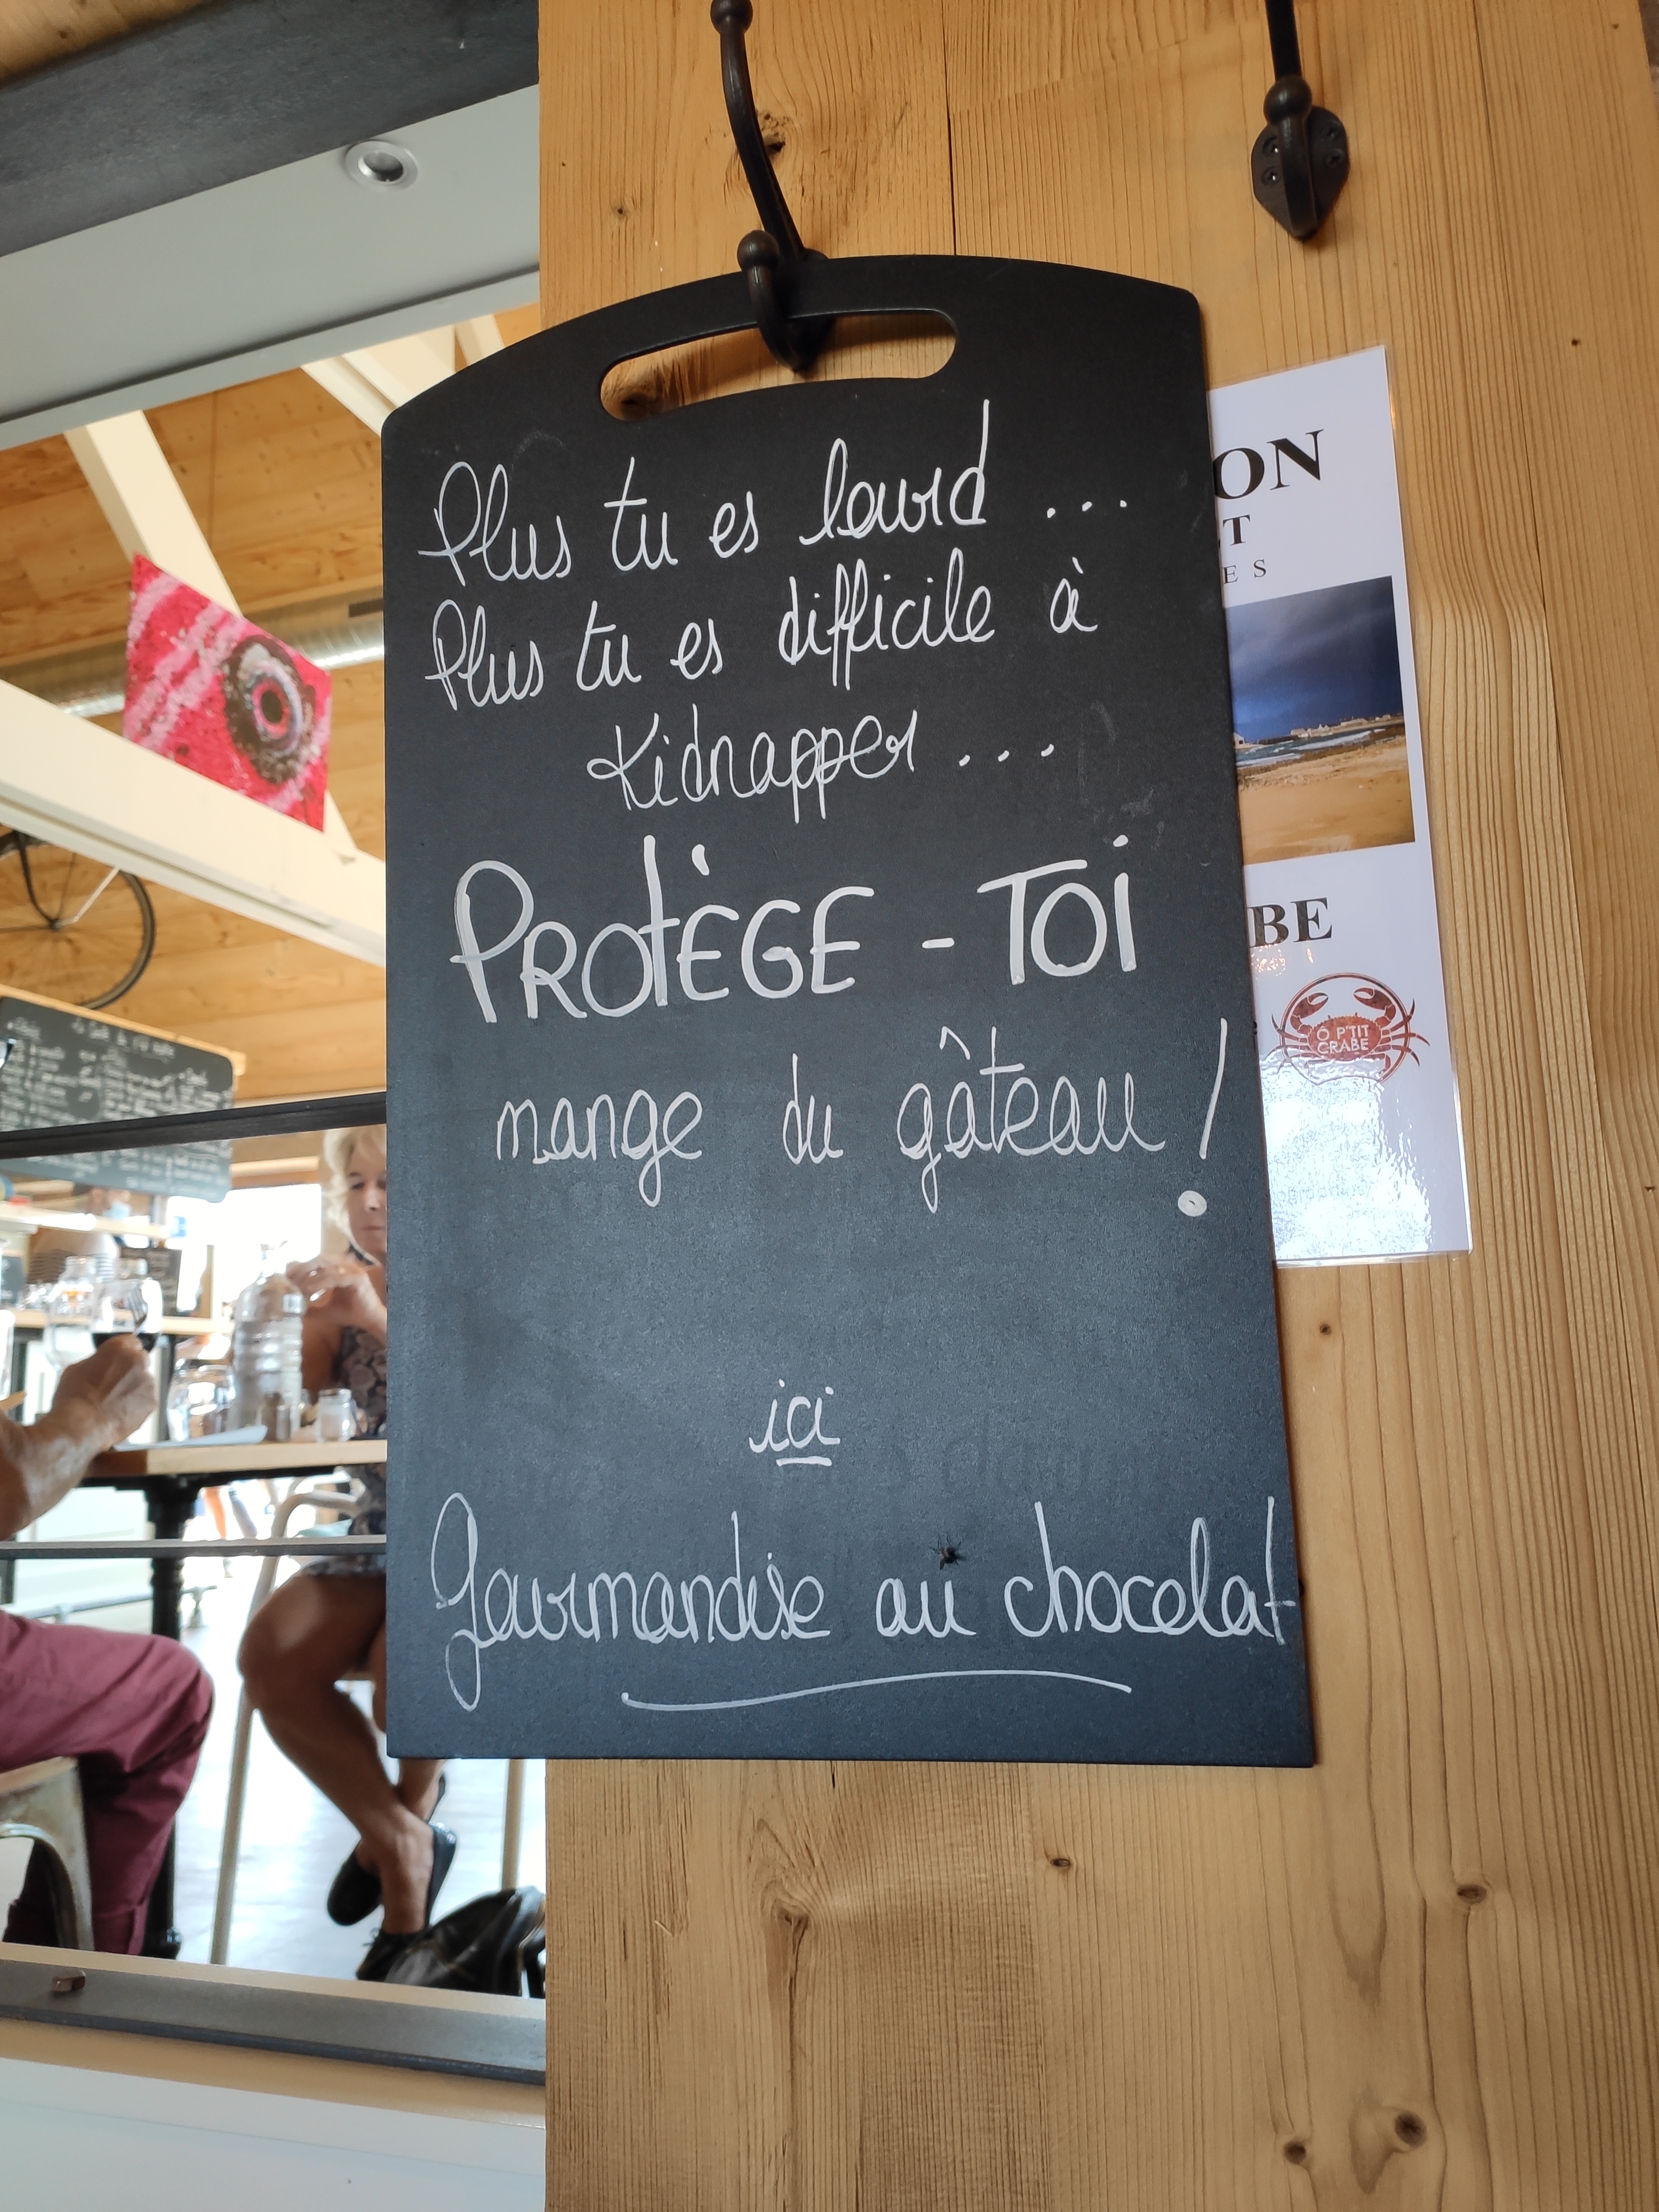 Plus tu es lourd ...
Plus tu es difficile à
Kidnapper ...
PROTÈGE - TOI
mange du gâteau !
ici
Gourmandise au chocolat
ON
T
ES
BE
Ô P'TIT
CRABE